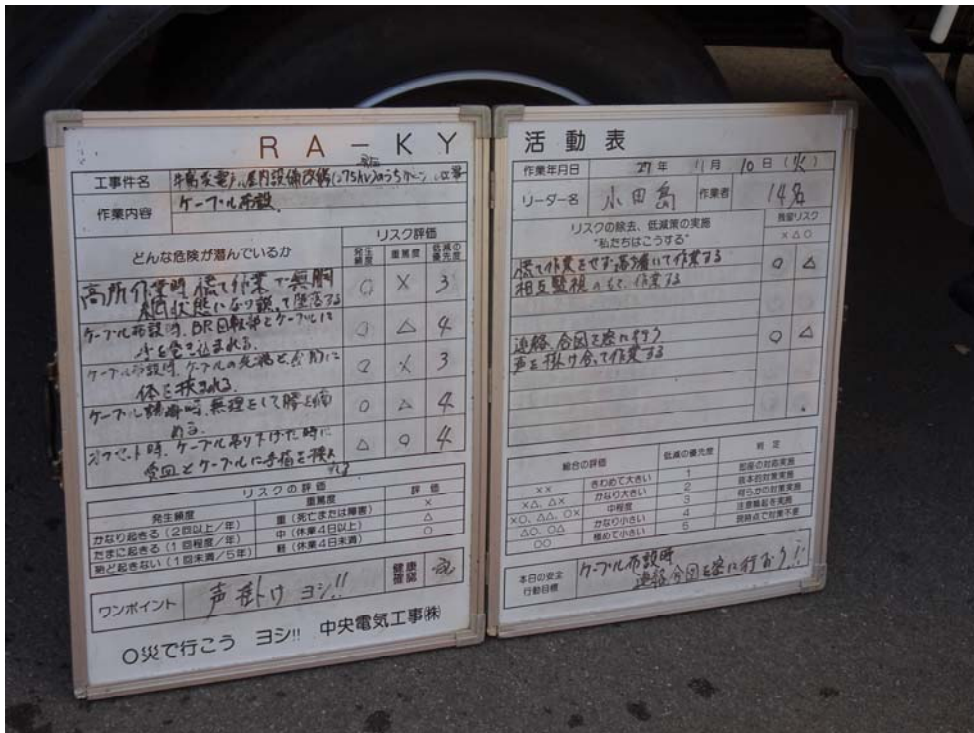 RA-KY
工事件名
作業内容
ケーブル布設
どんな危険が潜んでいるか
リスク評価
発生頻度 重篤度 低減の優先度
高所作業時、慌て作業で無胴
綱状態になり誤って墜落する
○ × 3
ケーブル布設時、BR回転部とケーブルに
手を巻き込まれる。
○ △ 4
ケーブル布設時、ケーブルの先端と
体を挟まれる。
○ × 3
無理をして腰を痛
める。
○ △ 4
オフセット時、ケーブル吊り下げた時に
受皿とケーブルに手指を挟ま
れる
△ ○ 4
リスクの評価
発生頻度 重篤度 評価
かなり起きる(2回以上/年) 重(死亡または障害) ×
たまに起きる(1回程度/年) 中(休業4日以上) △
殆ど起きない(1回未満/5年) 軽(休業4日未満) ○
ワンポイント 声掛け ヨシ!!
健康確認
○災で行こう ヨシ!! 中央電気工事㈱
活動表
作業年月日 27年 11月 10日(火)
リーダー名 小田島 作業者 14名
リスクの除去、低減策の実施
"私たちはこうする"
残留リスク
×△○
慌て作業をせず落ち着いて作業する
相互監視のもと、作業する
○ △
連絡、合図を密に行う
声を掛け合って作業する
○ △
総合の評価 低減の優先度 判定
×× きわめて大きい 1 即座の対応実施
×△、△× かなり大きい 2 抜本的対策実施
×○、△△、○× 中程度 3 何らかの対策実施
△○、○△ かなり小さい 4 注意喚起を実施
○○ 極めて小さい 5 現時点で対策不要
本日の安全
行動目標
ケーブル布設時
連絡合図を密に行おう!!